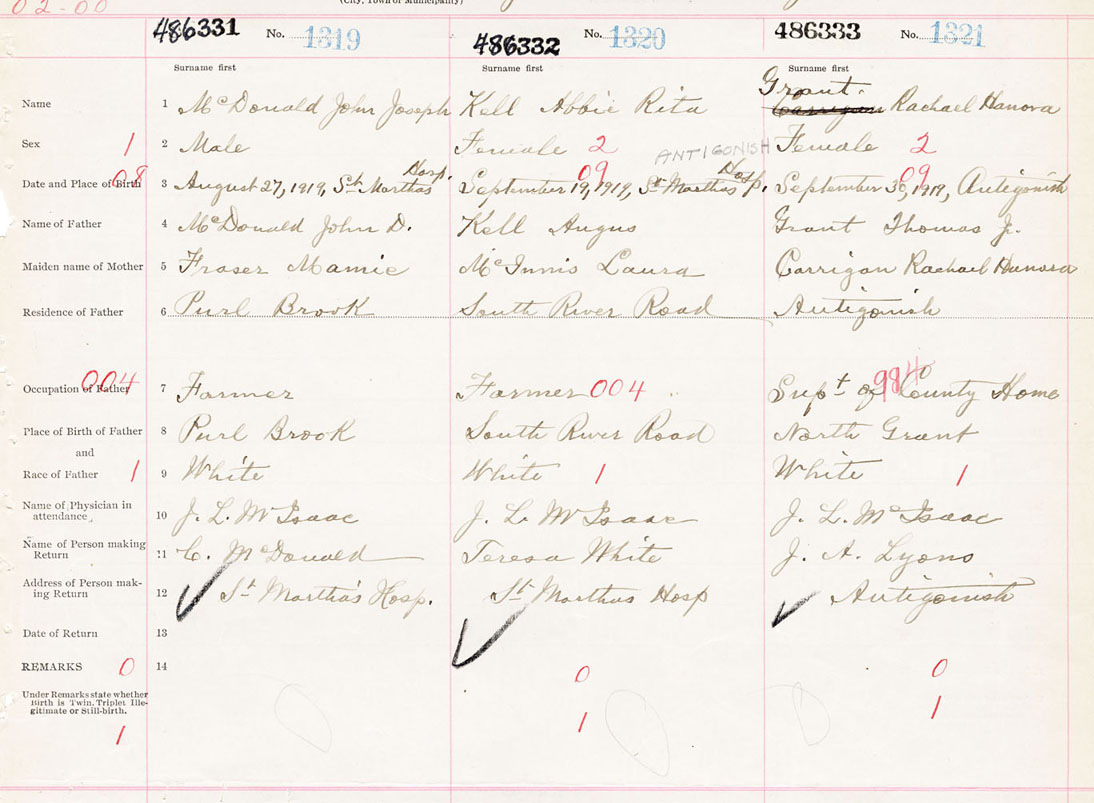 02-00
(City, Town or Municipality)
486331 No. 1319 486332 No. 1320 486333 No. 1321
Surname first Surname first Surname first
Grant.
Name 1 McDonald John Joseph Kell Abbie Rita Carrigan Rachael Hanora
Sex 1 2 Male Female 2 Female 2
ANTIGONISH
Hosp. 09 Hosp. 09
Date and Place of Birth 08 3 August 27, 1919, St. Marthas September 19, 1919, St Marthas September 30, 1919, Antigonish
Name of Father 4 McDonald John D. Kell Angus Grant Thomas Jr.
Maiden name of Mother 5 Fraser Mamie McInnis Laura Carrigan Rachael Hanora
Residence of Father 6 Purl Brook South River Road Antigonish
Occupation of Father 004 7 Farmer Farmer 004 Supt of County Home 984
Place of Birth of Father 8 Purl Brook South River Road North Grant
and
Race of Father 1 9 White White 1 White 1
Name of Physician in
attendance 10 J. L. McIsaac J. L. McIsaac J. L. McIsaac
Name of Person making
Return 11 C. McDonald Teresa White J. A. Lyons
Address of Person mak-
ing Return 12 St. Martha's Hosp. St. Marthas Hosp Antigonish
Date of Return 13
REMARKS 0 14 0 0
Under Remarks state whether
Birth is Twin, Triplet Ille-
gitimate or Still-birth.
1 1 1